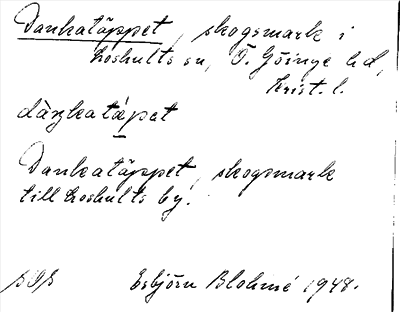 Dankatäppet, skogsmark i
Loshults sn, Ö. Göinge hd,
Krist. l.
dàŋkatæ̀pət
Dankatäppet, skogsmark
till Loshults by.
Esbjörn Blohmé 1948.